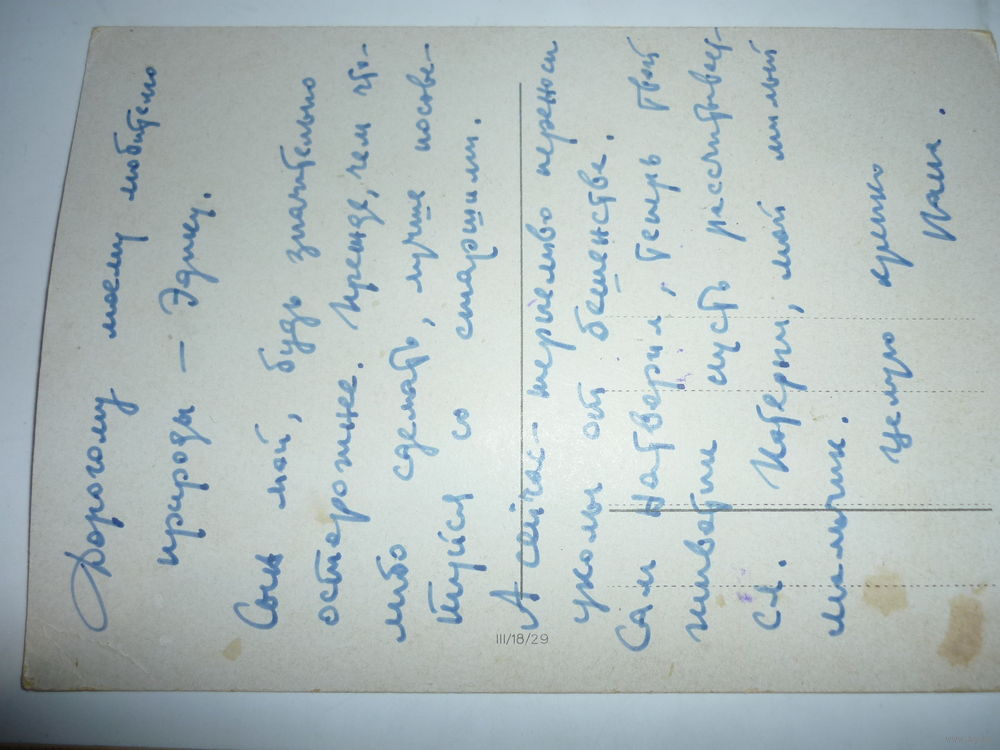 Дорогому моему любителю
природы — Эдику.
Сын мой, будь значительно
осторожнее. Прежде, чем что-
либо сделать, лучше посове-
туйся со старшими.
А сейчас — терпеливо переноси
уколы от бешенства.
Сам натворил, теперь твой
животик пусть рассчитывает-
ся. Потерпи, мой милый
мальчик.
Целую крепко
Папа.
III/18/29